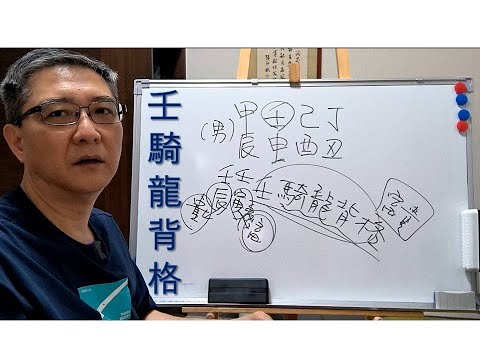 壬騎龍背格
(男) 甲壬己丁
辰申酉丑
壬壬
辰寅壬騎龍背格
貴
富
富貴